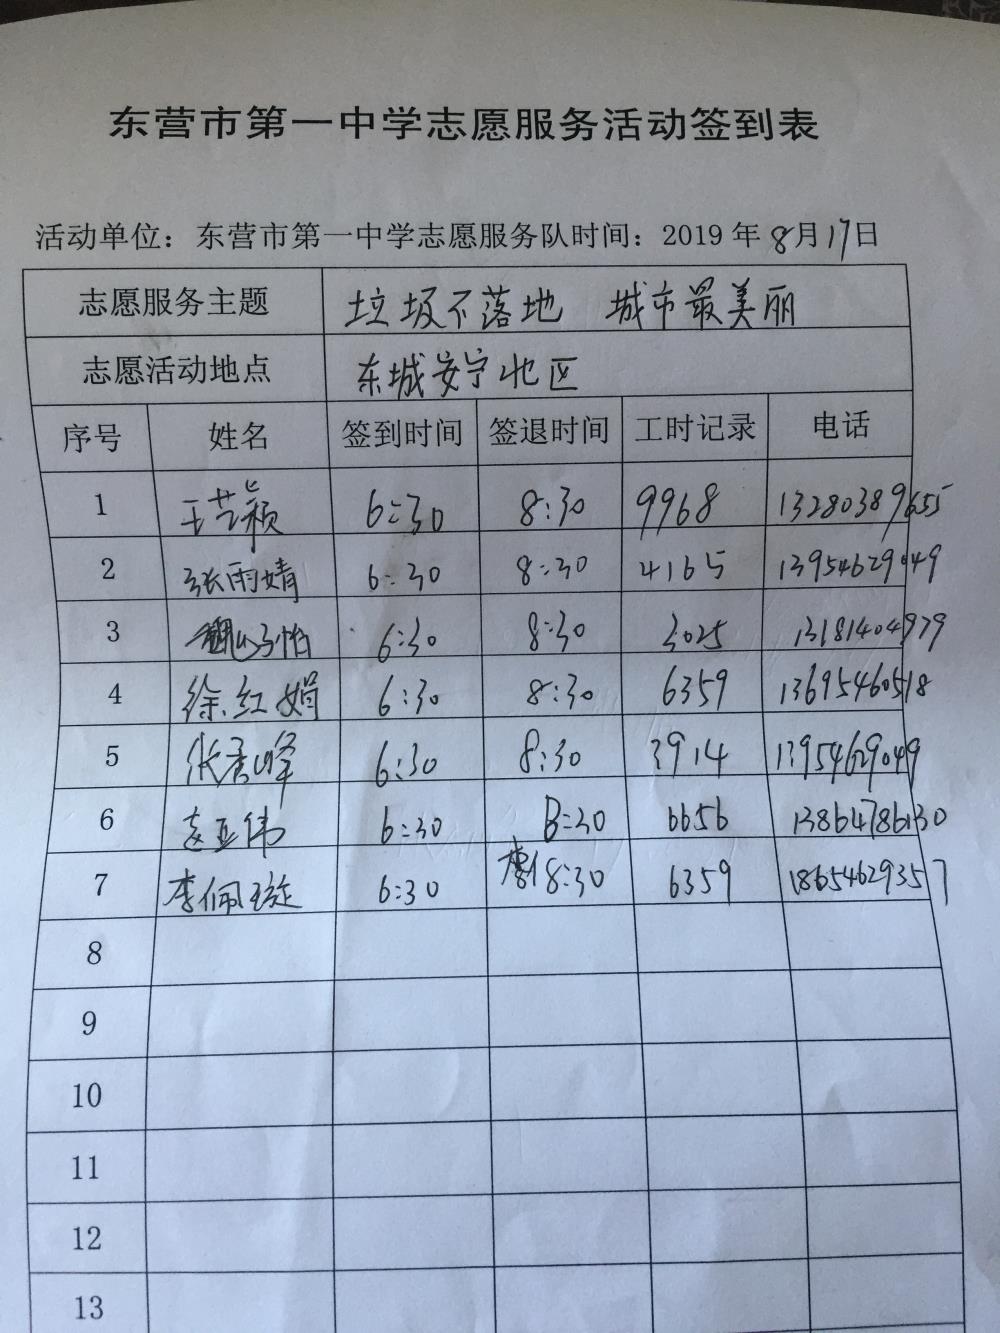 东营市第一中学志愿服务活动签到表
活动单位：东营市第一中学志愿服务队时间：2019年8月17日
志愿服务主题 垃圾不落地 城市最美丽
志愿活动地点 东城安宁地区
序号 姓名 签到时间 签退时间 工时记录 电话
1 王艺颖 6:30 8:30 9968 13280389655
2 张雨婧 6:30 8:30 4165 13954629049
3 魏子怡 6:30 8:30 3025 13181404979
4 徐红娟 6:30 8:30 6359 13695460518
5 张秀峰 6:30 8:30 3914 13954629049
6 赵亚伟 6:30 8:30 6656 13864786130
7 李佩璇 6:30 8:30 6359 18654629357
8
9
10
11
12
13